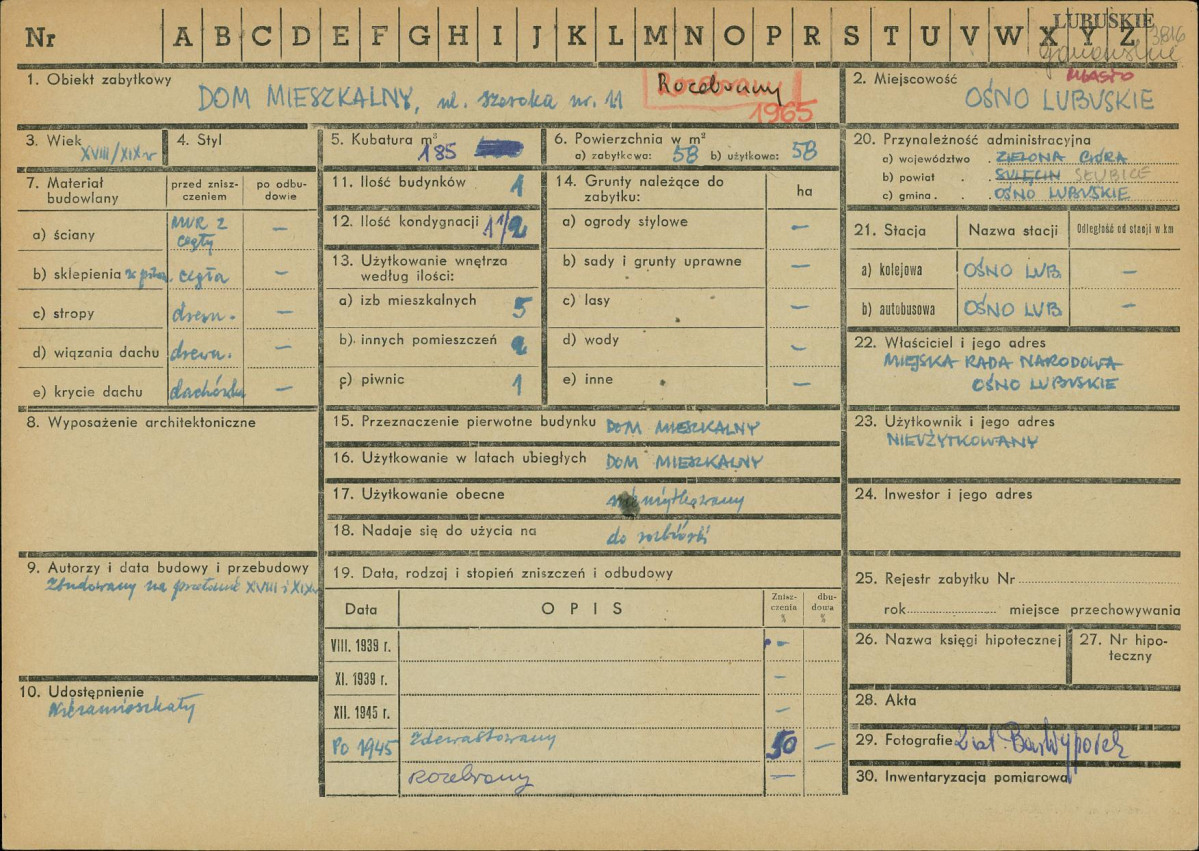 Nr A B C D E F G H I J K L M N O P R S T U V W X Y Z
LUBUSKIE
3816
1. Obiekt zabytkowy
DOM MIESZKALNY, ul. Szeroka nr. 11
Rozebrany
1965
2. Miejscowość MIASTO
OŚNO LUBUSKIE
3. Wiek
XVIII/XIX w
4. Styl
5. Kubatura m³
185
6. Powierzchnia w m²
a) zabytkowa: 58 b) użytkowa: 58
20. Przynależność administracyjna
a) województwo . ZIELONA GÓRA
b) powiat . . SULĘCIN SŁUBICE
c) gmina . . OŚNO LUBUSKIE
7. Materiał budowlany
przed zniszczeniem
po odbudowie
a) ściany MUR Z cegły –
b) sklepienia cegła –
c) stropy drewn. –
d) wiązania dachu drewn. –
e) krycie dachu dachówka –
11. Ilość budynków 1
12. Ilość kondygnacji 1 1/2
13. Użytkowanie wnętrza według ilości:
a) izb mieszkalnych 5
b) innych pomieszczeń 2
c) piwnic 1
14. Grunty należące do zabytku: ha
a) ogrody stylowe –
b) sady i grunty uprawne –
c) lasy –
d) wody –
e) inne –
21. Stacja Nazwa stacji Odległość od stacji w km
a) kolejowa OŚNO LUB. –
b) autobusowa OŚNO LUB. –
22. Właściciel i jego adres
MIEJSKA RADA NARODOWA
OŚNO LUBUSKIE
8. Wyposażenie architektoniczne
15. Przeznaczenie pierwotne budynku DOM MIESZKALNY
16. Użytkowanie w latach ubiegłych DOM MIESZKALNY
17. Użytkowanie obecne nieużytkowany
18. Nadaje się do użycia na do rozbiórki
23. Użytkownik i jego adres
NIEUŻYTKOWANY
24. Inwestor i jego adres
9. Autorzy i data budowy i przebudowy
Zbudowany na przełomie XVIII i XIX w
19. Data, rodzaj i stopień zniszczeń i odbudowy
Data OPIS Zniszczenia % dbudowa %
VIII. 1939 r. –
XI. 1939 r. –
XII. 1945 r. –
Po 1945 Zdewastowany 50 –
rozebrany –
10. Udostępnienie
Niezamieszkały
25. Rejestr zabytku Nr
rok miejsce przechowywania
26. Nazwa księgi hipotecznej
27. Nr hipoteczny
28. Akta
29. Fotografie
30. Inwentaryzacja pomiarowa